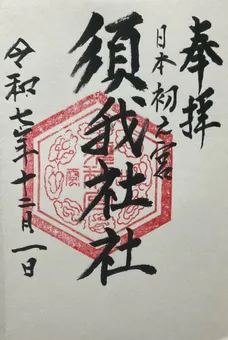 奉拝
日本初之宮
須我神社
令和七年十二月一日